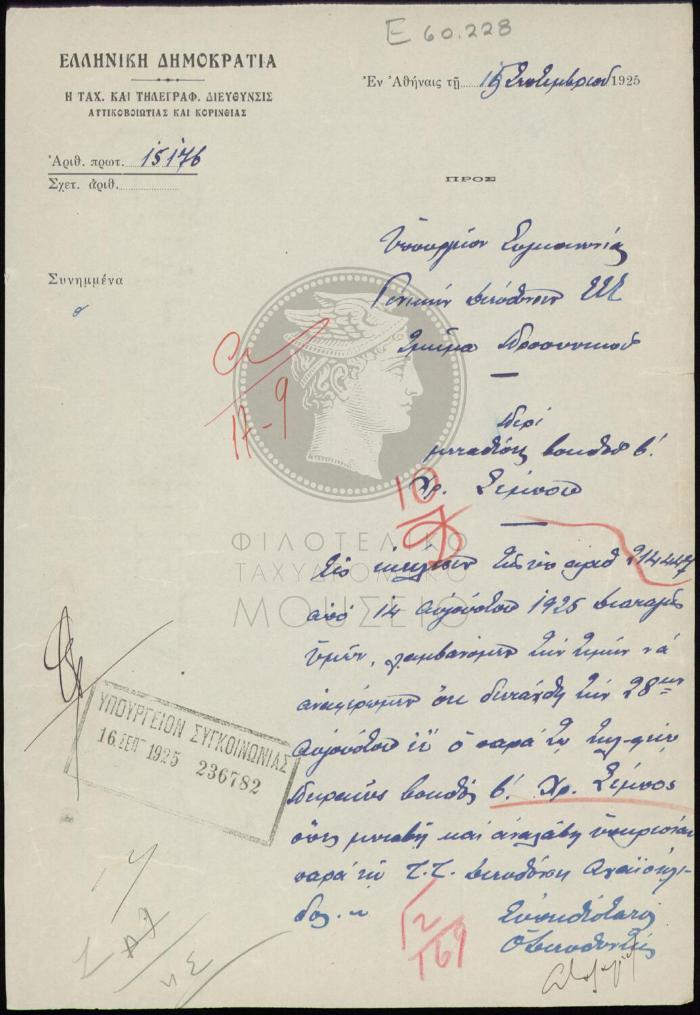 Ε 60.228
ΕΛΛΗΝΙΚΗ ΔΗΜΟΚΡΑΤΙΑ
Η ΤΑΧ. ΚΑΙ ΤΗΛΕΓΡΑΦ. ΔΙΕΥΘΥΝΣΙΣ
ΑΤΤΙΚΟΒΟΙΩΤΙΑΣ ΚΑΙ ΚΟΡΙΝΘΙΑΣ
Ἐν Ἀθήναις τῇ 16 Σεπτεμβρίου 1925
Ἀριθ. πρωτ. 15176
Σχετ. ἀριθ.
ΠΡΟΣ
Ὑπουργεῖον Συγκοινωνίας
Γενικὴν Διεύθυνσιν ΤΤΤ
Τμῆμα Προσωπικοῦ
Συνημμένα
17-9
Περὶ
μεταθέσεως βοηθοῦ β!
Χρ. Σέμπου
10
ΦΙΛΟΤΕΛΙΚΟ
ΤΑΧΥΔΡΟΜΙΚΟ
ΜΟΥΣΕΙΟ
Εἰς ἐκτέλεσιν τῆς ὑπ' ἀριθ 214447
ἀπὸ 14 Αὐγούστου 1925 διαταγῆς
ὑμῶν, λαμβάνομεν τὴν τιμὴν νὰ
ἀναφέρωμεν ὅτι διετάχθη τὴν 28ην
Αὐγούστου ἐ.ἔ. ὁ παρὰ τῷ
Πειραιῶς βοηθὸς β! Χρ. Σέμπος
ὅπως μεταβῇ καὶ ἀναλάβῃ ὑπηρεσίαν
παρὰ τῇ Τ.Τ. Διευθύνσει
δος.
ΥΠΟΥΡΓΕΙΟΝ ΣΥΓΚΟΙΝΩΝΙΑΣ
16 ΣΕΠ 1925 236782
Εὐπειθέστατος
Ὁ Διευθυντὴς
12/169